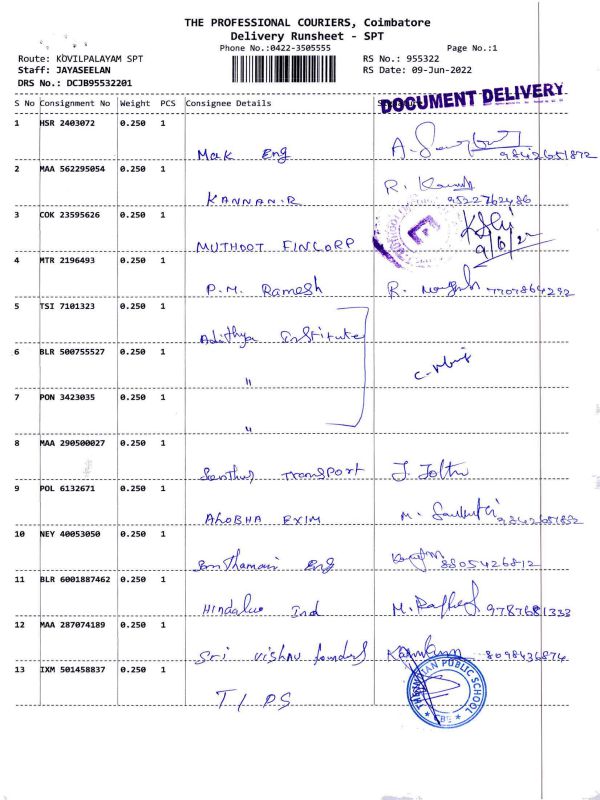 THE PROFESSIONAL COURIERS, Coimbatore
Delivery Runsheet - SPT
Phone No.:0422-3505555
Page No.:1
Route: KOVILPALAYAM SPT
RS No.: 955322
Staff: JAYASEELAN
RS Date: 09-Jun-2022
DRS No.: DCJB95532201
DOCUMENT DELIVERY
S No Consignment No Weight PCS Consignee Details
1 HSR 2403072 0.250 1
Mak Eng A. 9842651872
2 MAA 562295054 0.250 1
KANNAN.R R. 9522762486
3 COK 23595626 0.250 1
MUTHOOT FINCORP 9/6/22
4 MTR 2196493 0.250 1
P.M. Ramesh R. 7707864292
5 TSI 7101323 0.250 1
Adithya Institute
6 BLR 500755527 0.250 1
"
7 PON 3423035 0.250 1
"
8 MAA 290500027 0.250 1
TRANSPORT J.
9 POL 6132671 0.250 1
AHOBHA EXIM M. 9842651852
10 NEY 40053050 0.250 1
Eng 8805426812
11 BLR 6001887462 0.250 1
Hindalco Ind M. 9787681333
12 MAA 287074189 0.250 1
Sri Vishnu founders 8098436874
13 IXM 501458837 0.250 1
TIPS
THE INDIAN PUBLIC SCHOOL
CBE